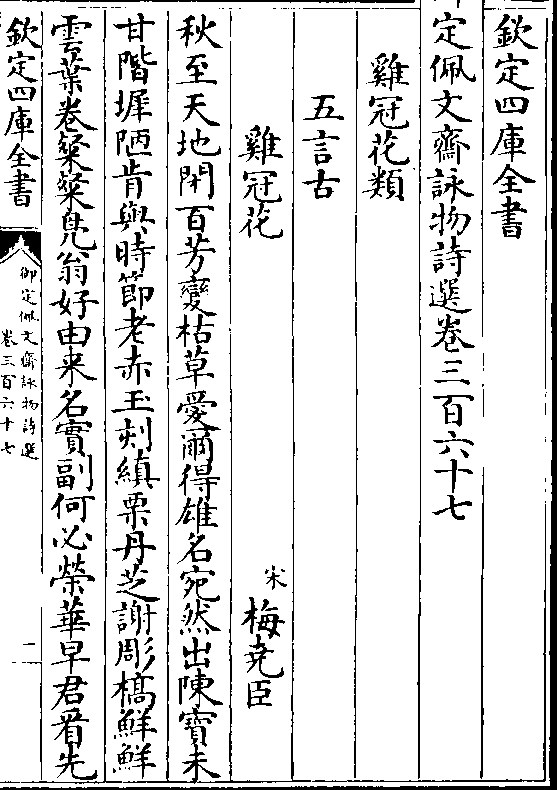 欽定四庫全書
定佩文齋詠物詩選卷三百六十七
雞冠花類
五言古
雞冠花　宋　梅尭臣
秋至天地閉百芳變枯草愛爾得雄名宛然出陳寶未
甘階墀陋肯與時節老赤玉刻縝栗丹芝謝彫槁鮮鮮
雲葉卷粲粲鳧翁好由来名實副何必榮華早君㸔先
欽定四庫全書
御定佩文齋詠物詩選
卷三百六十七
一